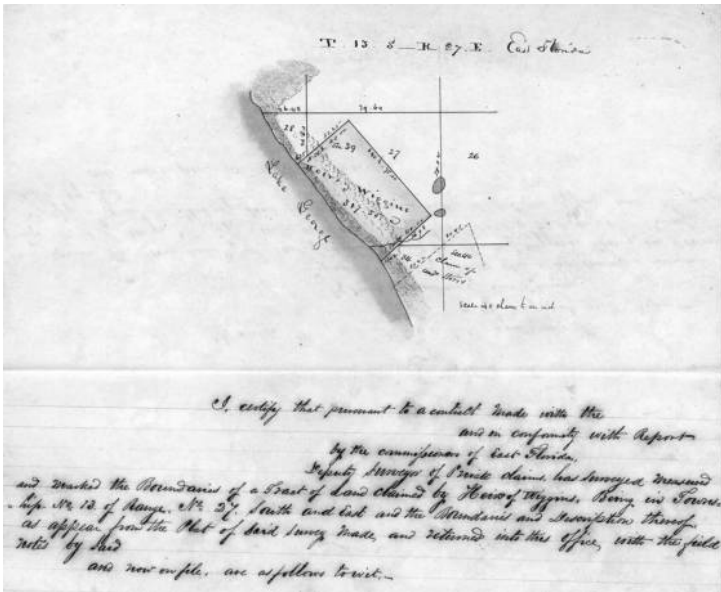 T. 13 S — R 27. E. East Florida
79.60
28
27
26
39
Heirs of Wiggins
Lake George
claim of
Scale 40 chains to an inch
I, certify that pursuant to a contract made with the
and in conformity with Report
by the commissioners of East Florida,
Deputy Surveyor of Private claims, has surveyed measured
and marked the Boundaries of a Tract of Land claimed by Heirs of Wiggins, Being in Towns
-hip. No. 13. of Range. No. 27. South and East and the Boundaries and Description thereof
as appear from the Plat of said survey made, and returned into this office, with the field
notes by said
and now on file, are as follows to wit,—